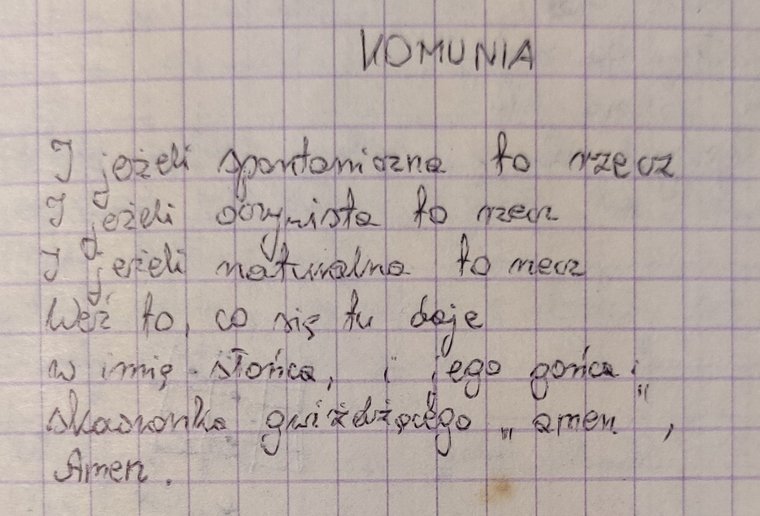 KOMUNIA
I jeżeli spontaniczna to rzecz
I jeżeli oczywista to rzecz
I jeżeli naturalna to rzecz
Weź to, co się tu daje
w imię słońca, i jego gońca:
skowronka gwiżdżącego „amen",
Amen.